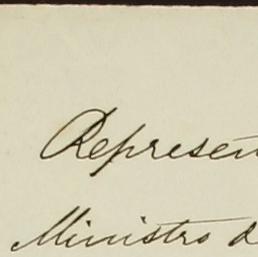 Represen
Ministro d